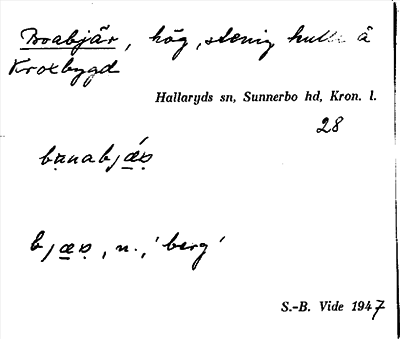 Broabjär, hög, stenig kulle å
Kroxbygd
Hallaryds sn, Sunnerbo hd, Kron. l.
28
bjæṛ, n., 'berg'
S.-B. Vide 1947